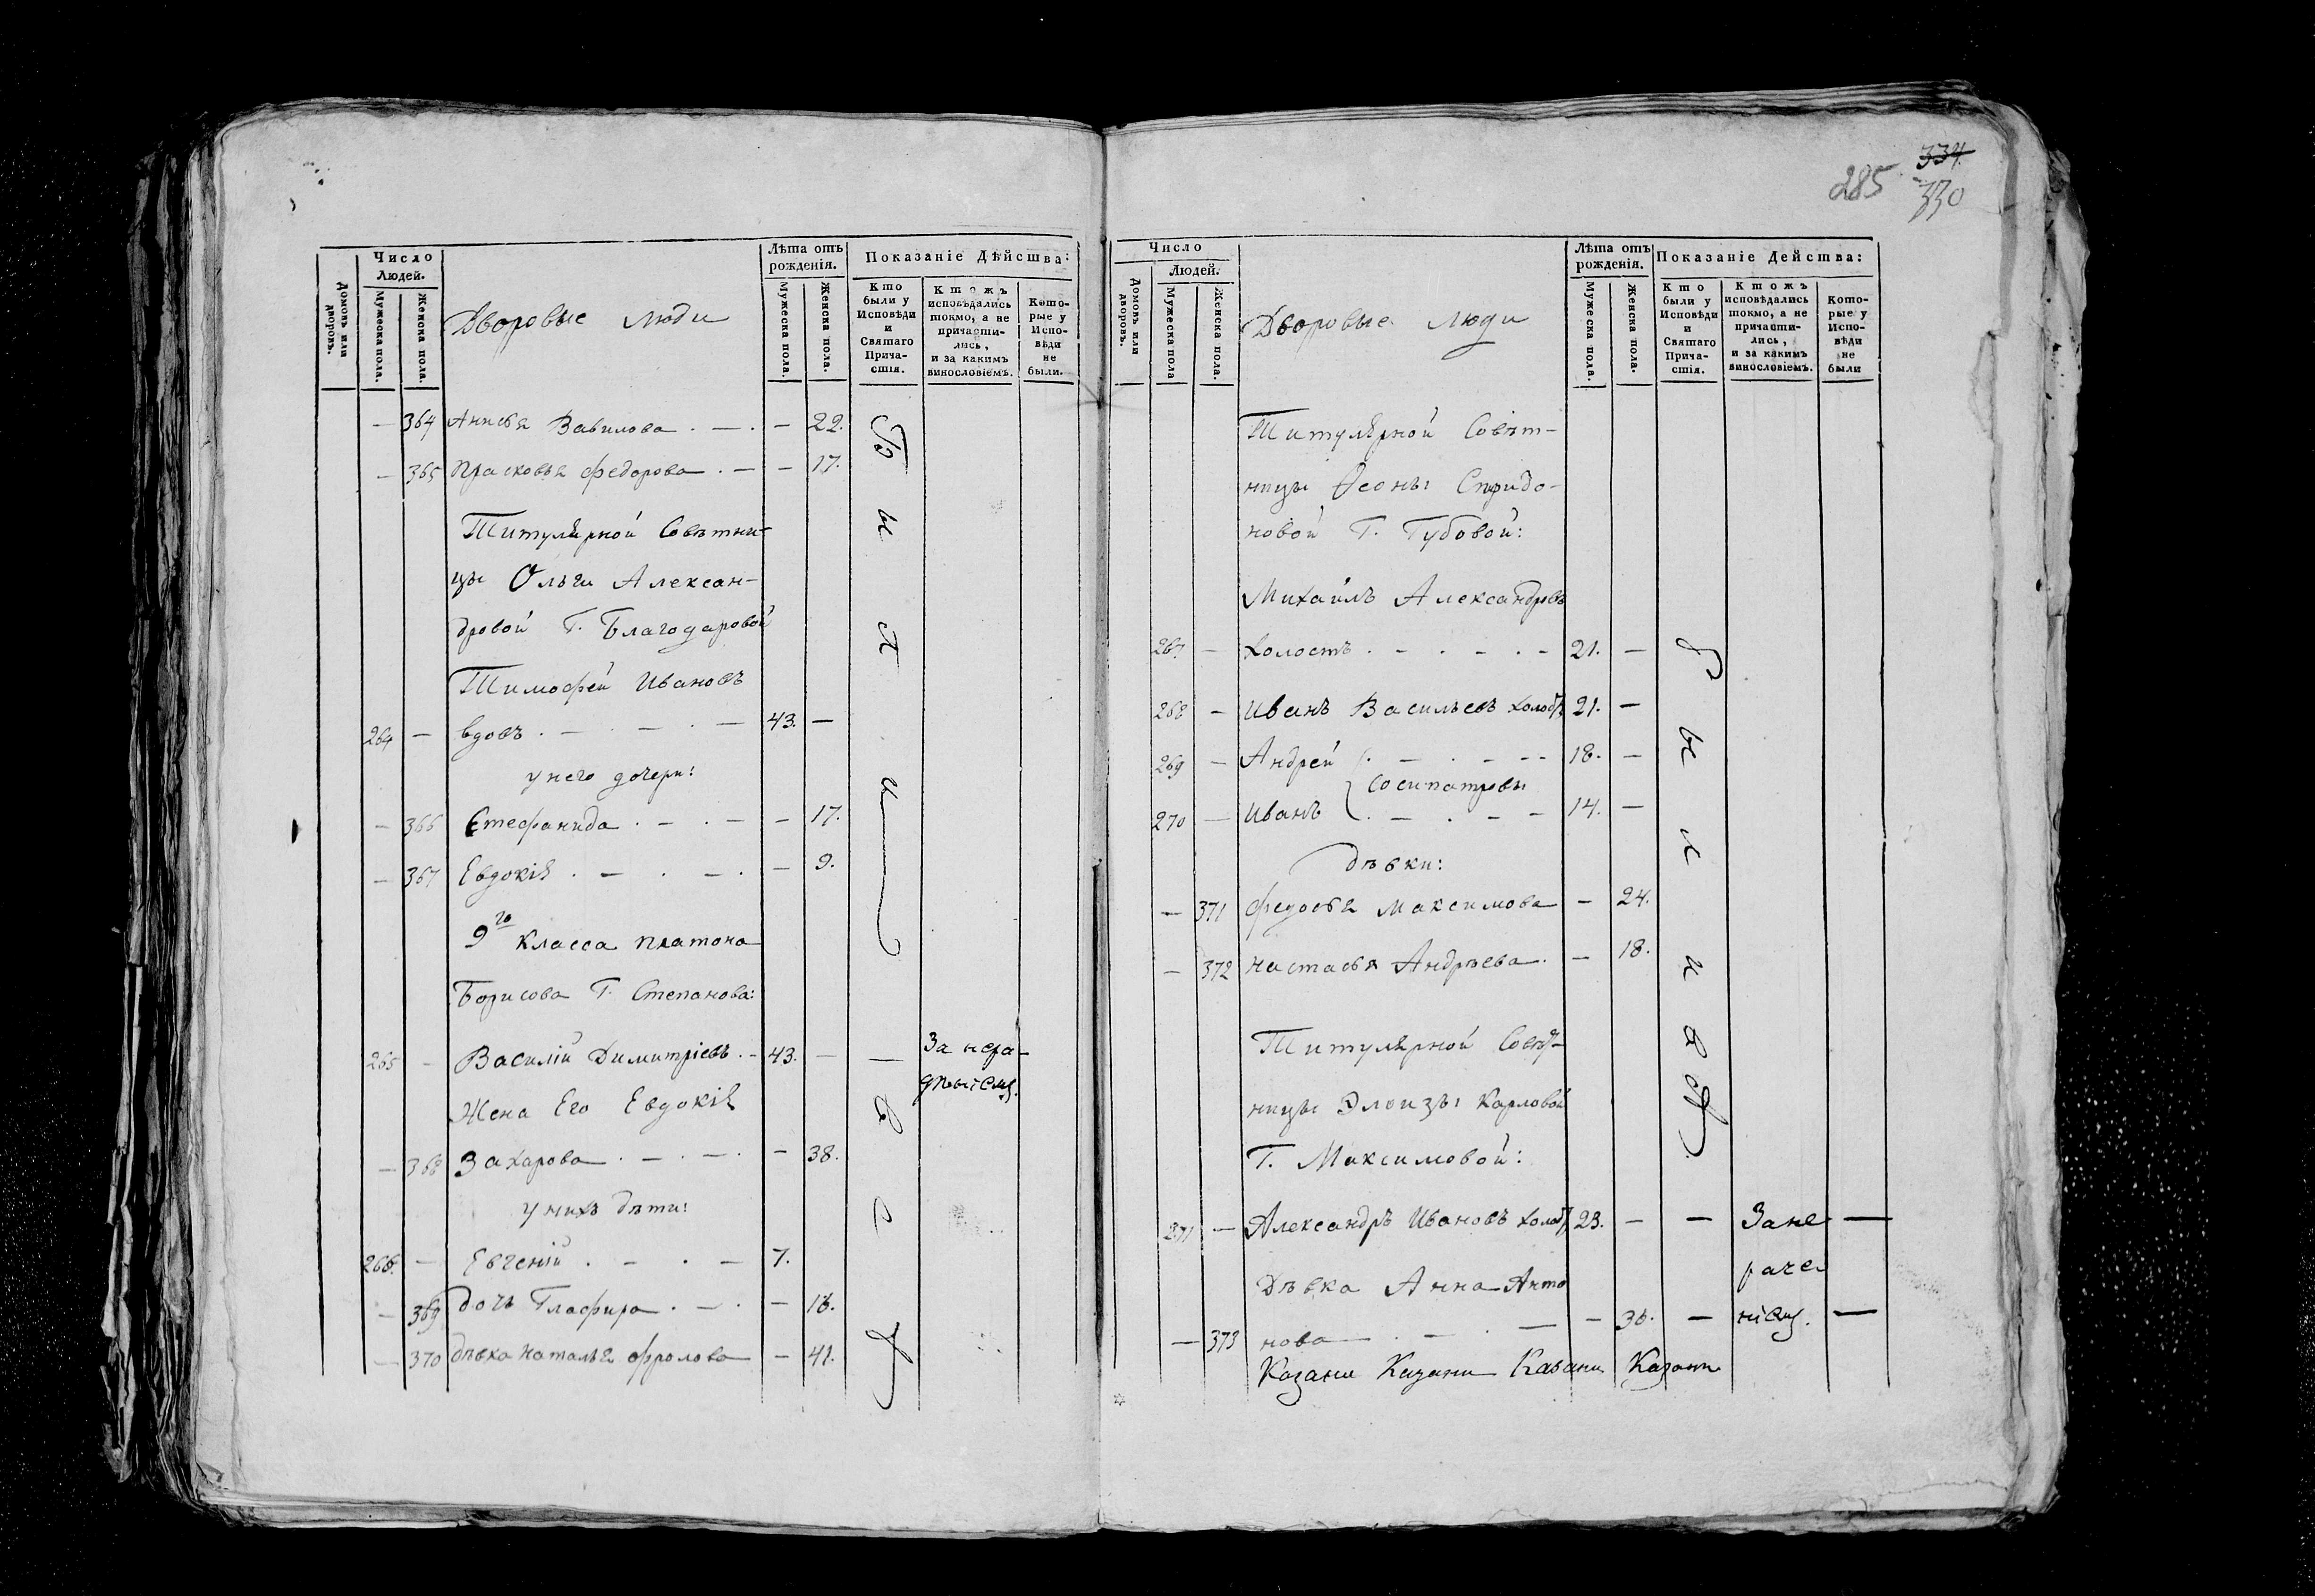 Число
Людей.
Домовъ или дворовъ.
Мужеска пола.
Женска пола.
Дворовые люди
Лѣта отъ рожденія.
Мужеска пола.
Женска пола.
Показаніе Дѣйства:
Кто были у Исповѣди и Святаго Причастія.
Ктожъ исповѣдались токмо, а не причастились, и за какимъ винословіемъ.
Которые у Исповѣди не были.
— 364 Анисья Вавилова . — . — 22.
— 365 Прасковья Федорова . — — 17.
Титулярной Совѣтни-
цы Ольги Алексан-
дровой Г. Благодаровой
Тимофей Ивановъ
264 — вдовъ . — . — . — 43. —
у него дочери:
— 366 Стефанида . — . — — 17.
— 367 Евдокія . — . — . — 9.
9го класса Платона
Борисова Г. Степанова:
265 — Василій Димитріевъ . — 43. — — За нера-
дѣніемъ.
Жена Его Евдокія
— 368 Захарова . — . — . — 38.
у нихъ дѣти:
266. — Евгеній . — . — 7.
— 369 дочь Глафира . — . — 16.
— 370 дѣвка Наталья Фролова — 41.
Были
всѣ
285
334.
330
Число
Людей.
Домовъ или дворовъ.
Мужеска пола
Женска пола.
Дворовые люди
Лѣта отъ рожденія.
Мужеска пола.
Женска пола.
Показаніе Дейсшва:
Кто были у Исповѣди и Святаго Причастія.
Ктожъ исповѣдались токмо, а не причастились, и за какимъ винословіемъ.
Которые у Исповѣди не были
Титулярной Совѣт-
ницы
новой Г. Губовой:
Михаилъ Александровъ
267 — холостъ . — . — . . — 21. —
268 — Иванъ Васильевъ холостъ 21. —
269 — Андрей . — . — — 18. —
Сосипатровы
270 — Иванъ . — . — — 14. —
дѣвки:
— 371 Федосья Максимова — 24.
— 372 Настасья Андрѣева . — 18.
Титулярной Совѣт-
ницы Элеизы Карловой
Г. Максимовой:
271 — Александръ Ивановъ холостъ 23. — — За не —
раче
Дѣвка Анна Анто
— 373 нова — . — . — — 36. — ніемъ. —
Казани Казани Казани Казани
Были